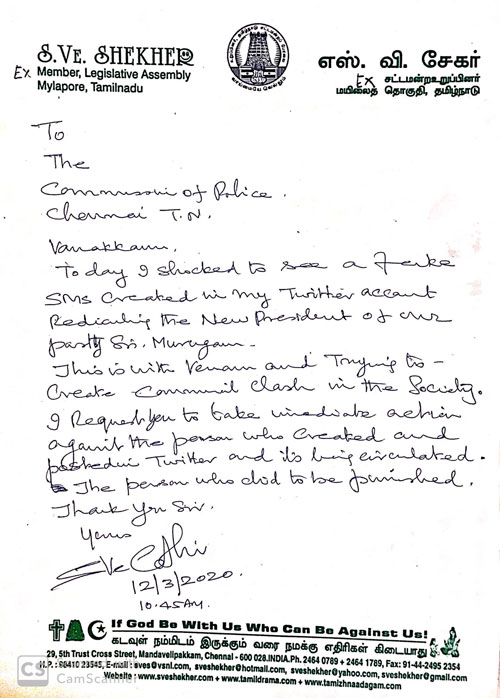 S.VE. SHEKHER
Ex Member, Legislative Assembly
Mylapore, Tamilnadu
எஸ். வி. சேகர்
Ex சட்டமன்றஉறுப்பினர்
மயிலைத் தொகுதி, தமிழ்நாடு
To
The
Commussoni of Police.
Chennai T.N.
Vanakkam.
Today I shocked to see a Feke
SMS Created in my Twitter account
Rediculing the New President of our
party Sri. Murugam.
This is with Venam and Trying to -
Create Communil clash in the Society.
I Request you to take imediate action
against the person who created and
posted in Twitter and its being circulated.
The person who did to be punished.
Thank You Sir.
Yours
12/3/2020.
10.45AM.
If God Be With Us Who Can Be Against Us!
கடவுள் நம்மிடம் இருக்கும் வரை நமக்கு எதிரிகள் கிடையாது
29, 5th Trust Cross Street, Mandavelipakkam, Chennai - 600 028.INDIA.Ph. 2464 0789 + 2464 1789, Fax: 91-44-2495 2354
H.P. : 98410 23545, E-mail : sves@vsnl.com, sveshekher@hotmail.com, sveshekher@yahoo.com, sveshekher@gmail.com
Website : www.sveshekher.com + www.tamildrama.com + www.tamizhnaadagam.com
CS CamScanner